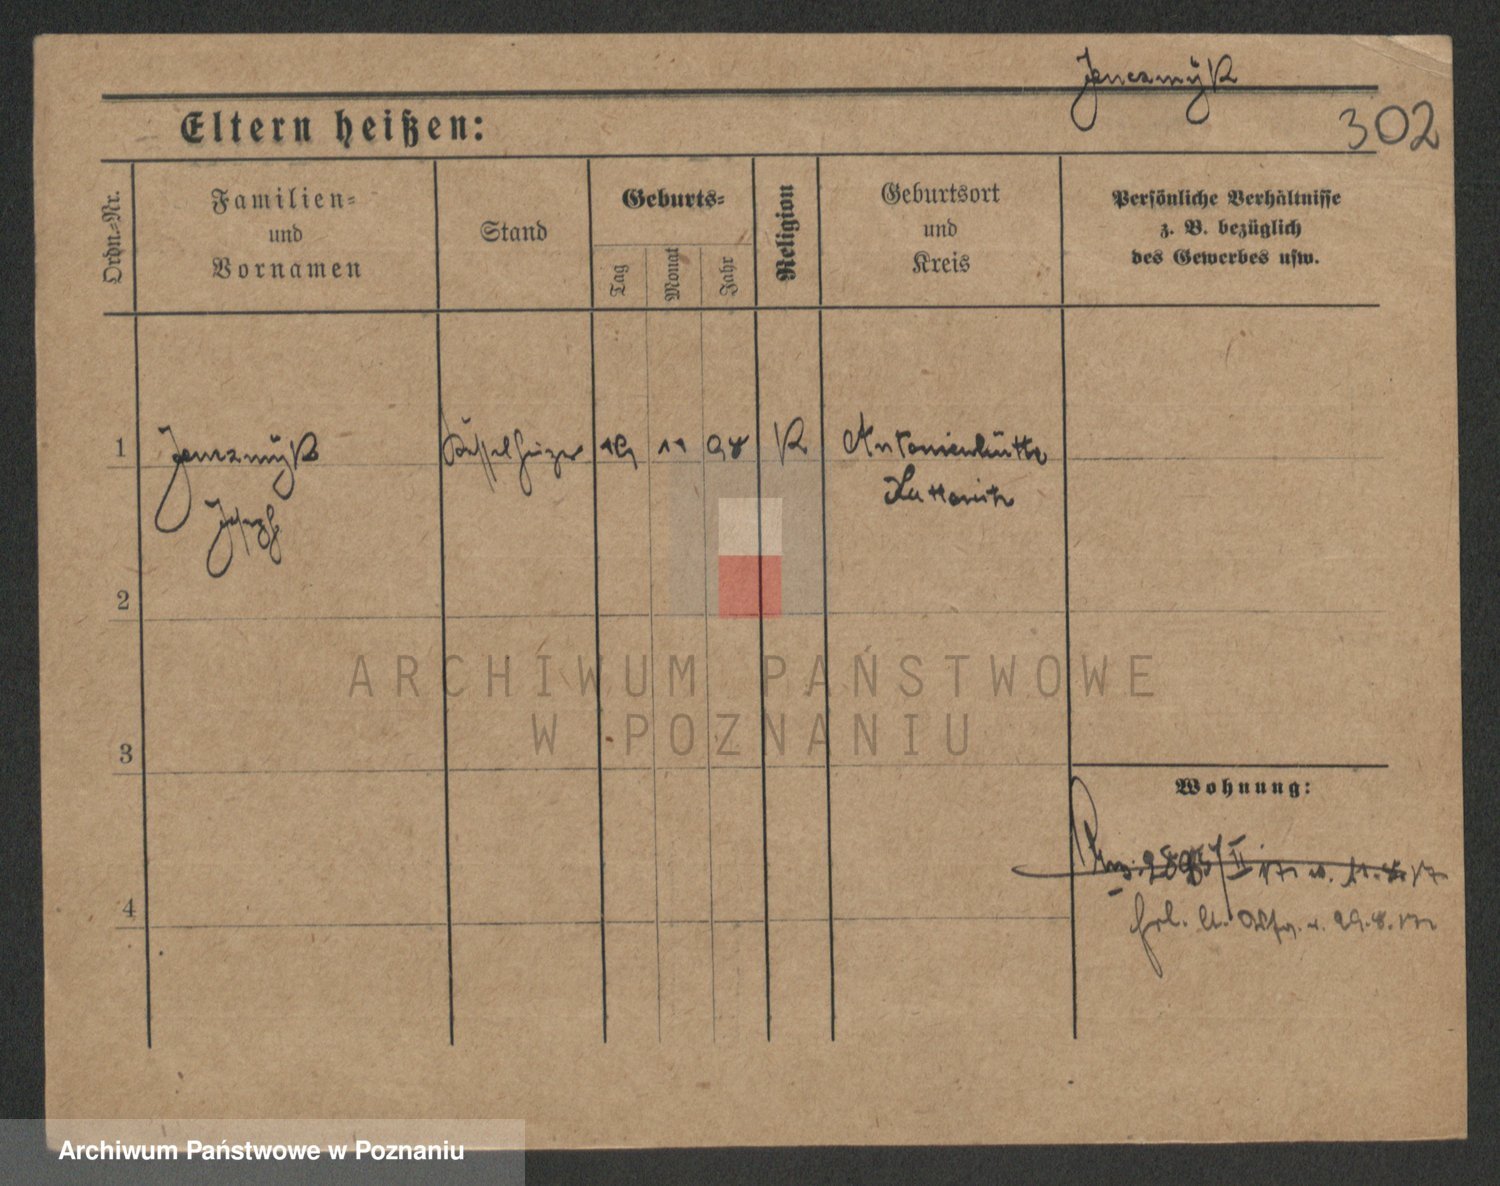 Jenczmÿk
302
Eltern heißen:
Ordn.-Nr.
Familien-
und
Vornamen
Stand
Geburts-
Tag
Monat
Jahr
Religion
Geburtsort
und
Kreis
Persönliche Verhältnisse
z. B. bezüglich
des Gewerbes usw.
1
Kesselheizer
19
11
98
K
Antonienhütte
Josef
Kattowitz
2
ARCHIWUM PAŃSTWOWE
W POZNANIU
3
Wohnung:
4
Archiwum Państwowe w Poznaniu